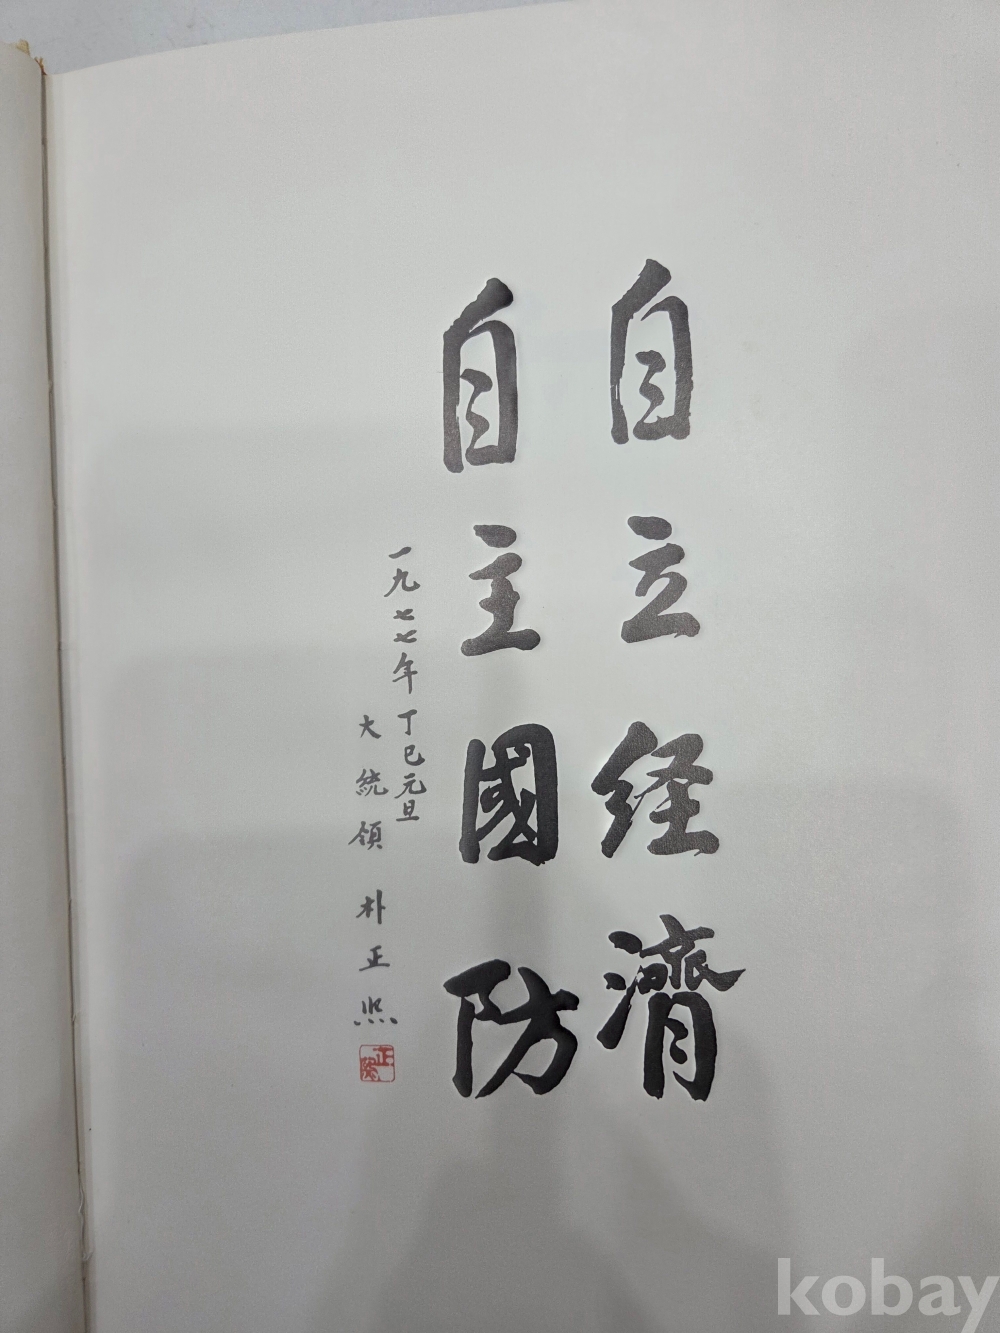 自立経濟
自主國防
一九七七年 丁巳元旦
大統領 朴正熙
正熙
kobay